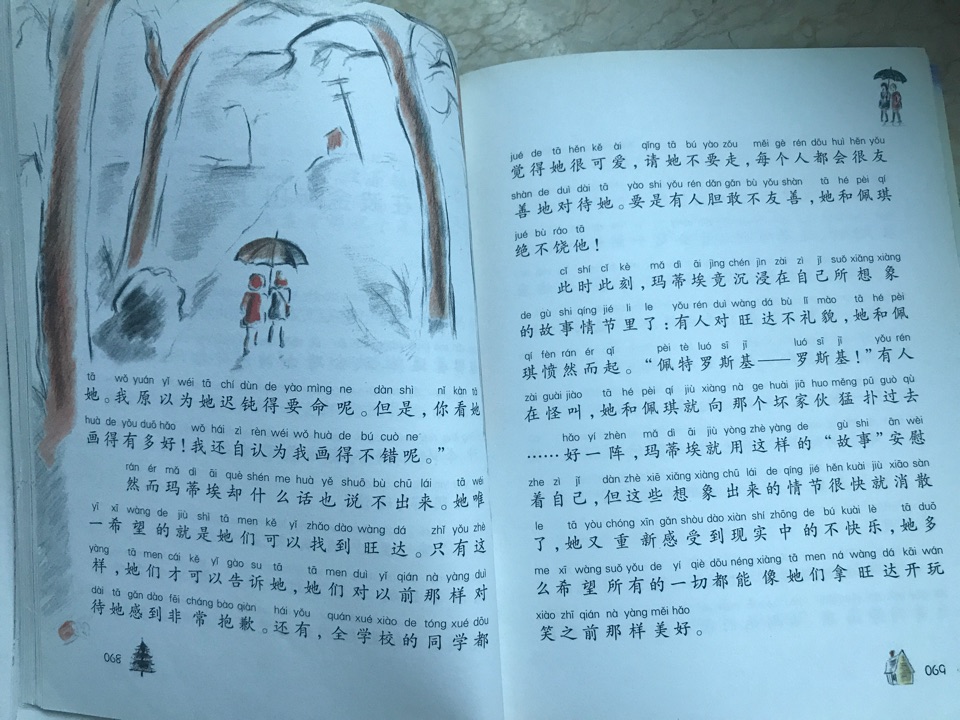 tā wǒ yuán yǐ wéi tā chí dùn de yào mìng ne dàn shì nǐ kàn tā
她。我原以为她迟钝得要命呢。但是,你看她
huà de yǒu duō hǎo wǒ hái zì rèn wéi wǒ huà de bú cuò ne
画得有多好!我还自认为我画得不错呢。”
rán ér mǎ dì āi què shén me huà yě shuō bù chū lái tā wéi
然而玛蒂埃却什么话也说不出来。她唯
yī xī wàng de jiù shì tā men kě yǐ zhǎo dào wàng dá zhǐ yǒu zhè
一希望的就是她们可以找到旺达。只有这
yàng tā men cái kě yǐ gào su tā tā men duì yǐ qián nà yàng duì
样,她们才可以告诉她,她们对以前那样对
dài tā gǎn dào fēi cháng bào qiàn hái yǒu quán xué xiào de tóng xué dōu
待她感到非常抱歉。还有,全学校的同学都
068
jué de tā hěn kě ài qǐng tā bú yào zǒu měi gè rén dōu huì hěn yǒu
觉得她很可爱,请她不要走,每个人都会很友
shàn de duì dài tā yào shi yǒu rén dǎn gǎn bù yǒu shàn tā hé pèi qí
善地对待她。要是有人胆敢不友善,她和佩琪
jué bù ráo tā
绝不饶他!
cǐ shí cǐ kè mǎ dì āi jìng chén jìn zài zì jǐ suǒ xiǎng xiàng
此时此刻,玛蒂埃竟沉浸在自己所想象
de gù shi qíng jié li le yǒu rén duì wàng dá bù lǐ mào tā hé pèi
的故事情节里了:有人对旺达不礼貌,她和佩
qí fèn rán ér qǐ pèi tè luó sī jī luó sī jī yǒu rén
琪愤然而起。“佩特罗斯基——罗斯基!”有人
zài guài jiào tā hé pèi qí jiù xiàng nà ge huài jiā huo měng pū guò qù
在怪叫,她和佩琪就向那个坏家伙猛扑过去
hǎo yí zhèn mǎ dì āi jiù yòng zhè yàng de gù shi ān wèi
……好一阵,玛蒂埃就用这样的“故事”安慰
zhe zì jǐ dàn zhè xiē xiǎng xiàng chū lái de qíng jié hěn kuài jiù xiāo sàn
着自己,但这些想象出来的情节很快就消散
le tā yòu chóng xīn gǎn shòu dào xiàn shí zhōng de bú kuài lè tā duō
了,她又重新感受到现实中的不快乐,她多
me xī wàng suǒ yǒu de yí qiè dōu néng xiàng tā men ná wàng dá kāi wán
么希望所有的一切都能像她们拿旺达开玩
xiào zhī qián nà yàng měi hǎo
笑之前那样美好。
069